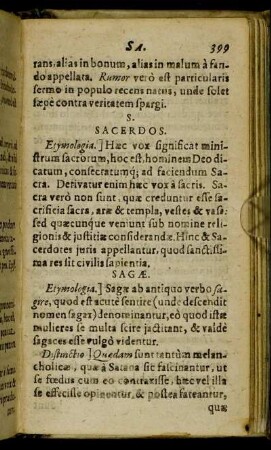 SA. 399
rans, alias in bonum, alias in malum à fan-
do appellata. Rumor verò est particularis
sermo in populo recens natus, unde solet
sæpè contra veritatem spargi.
S.
SACERDOS.
Etymologia.] Hæc vox significat mini-
strum sacrorum, hoc est, hominem Deo di-
catum, consecratumq; ad faciendum Sa-
cra. Derivatur enim hæc vox à sacris. Sa-
cra verò non sunt, quæ creduntur esse sa-
crificia sacra, aræ & templa, vestes & vasa:
sed quæcunque veniunt sub nomine reli-
gionis & justitiæ consideranda. Hinc & Sa-
cerdotes juris appellantur, quod sanctissi-
ma res sit civilis sapientia.
SAGÆ.
Etymologia.] Sagæ ab antiquo verbo sa-
gire, quod est acutè sentire (unde descendit
nomen sagax) denominantur, eò quod istæ
mulieres se multa scire jactitant, & valdè
sagaces esse vulgò videntur.
Distinctio.] Quædam sunt tantùm melan-
cholicæ, quæ à Satana sic fascinantur, ut
se fœdus cum eo contraxisse, hæc vel illa
se effecisse opinentur, & postea fateantur,
quæ